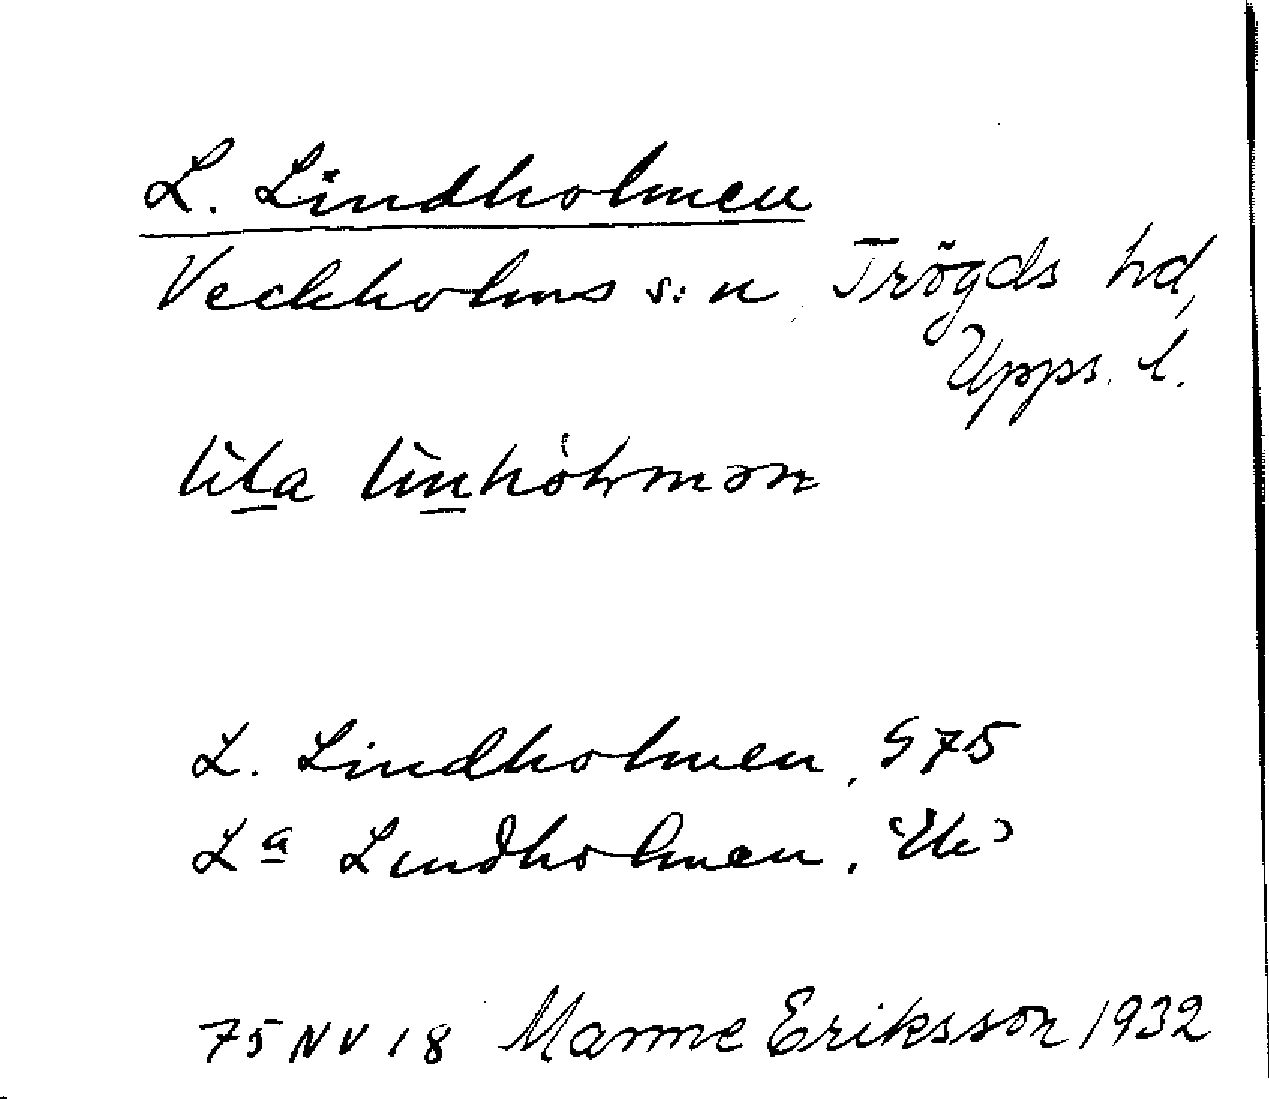 L. Lindholmen
Veckholms s:n, Trögds hd,
Upps. l.
lìla lìnhòlmən
L. Lindholmen, S 75
La Lindholmen,
75 NV 18 Manne Eriksson 1932